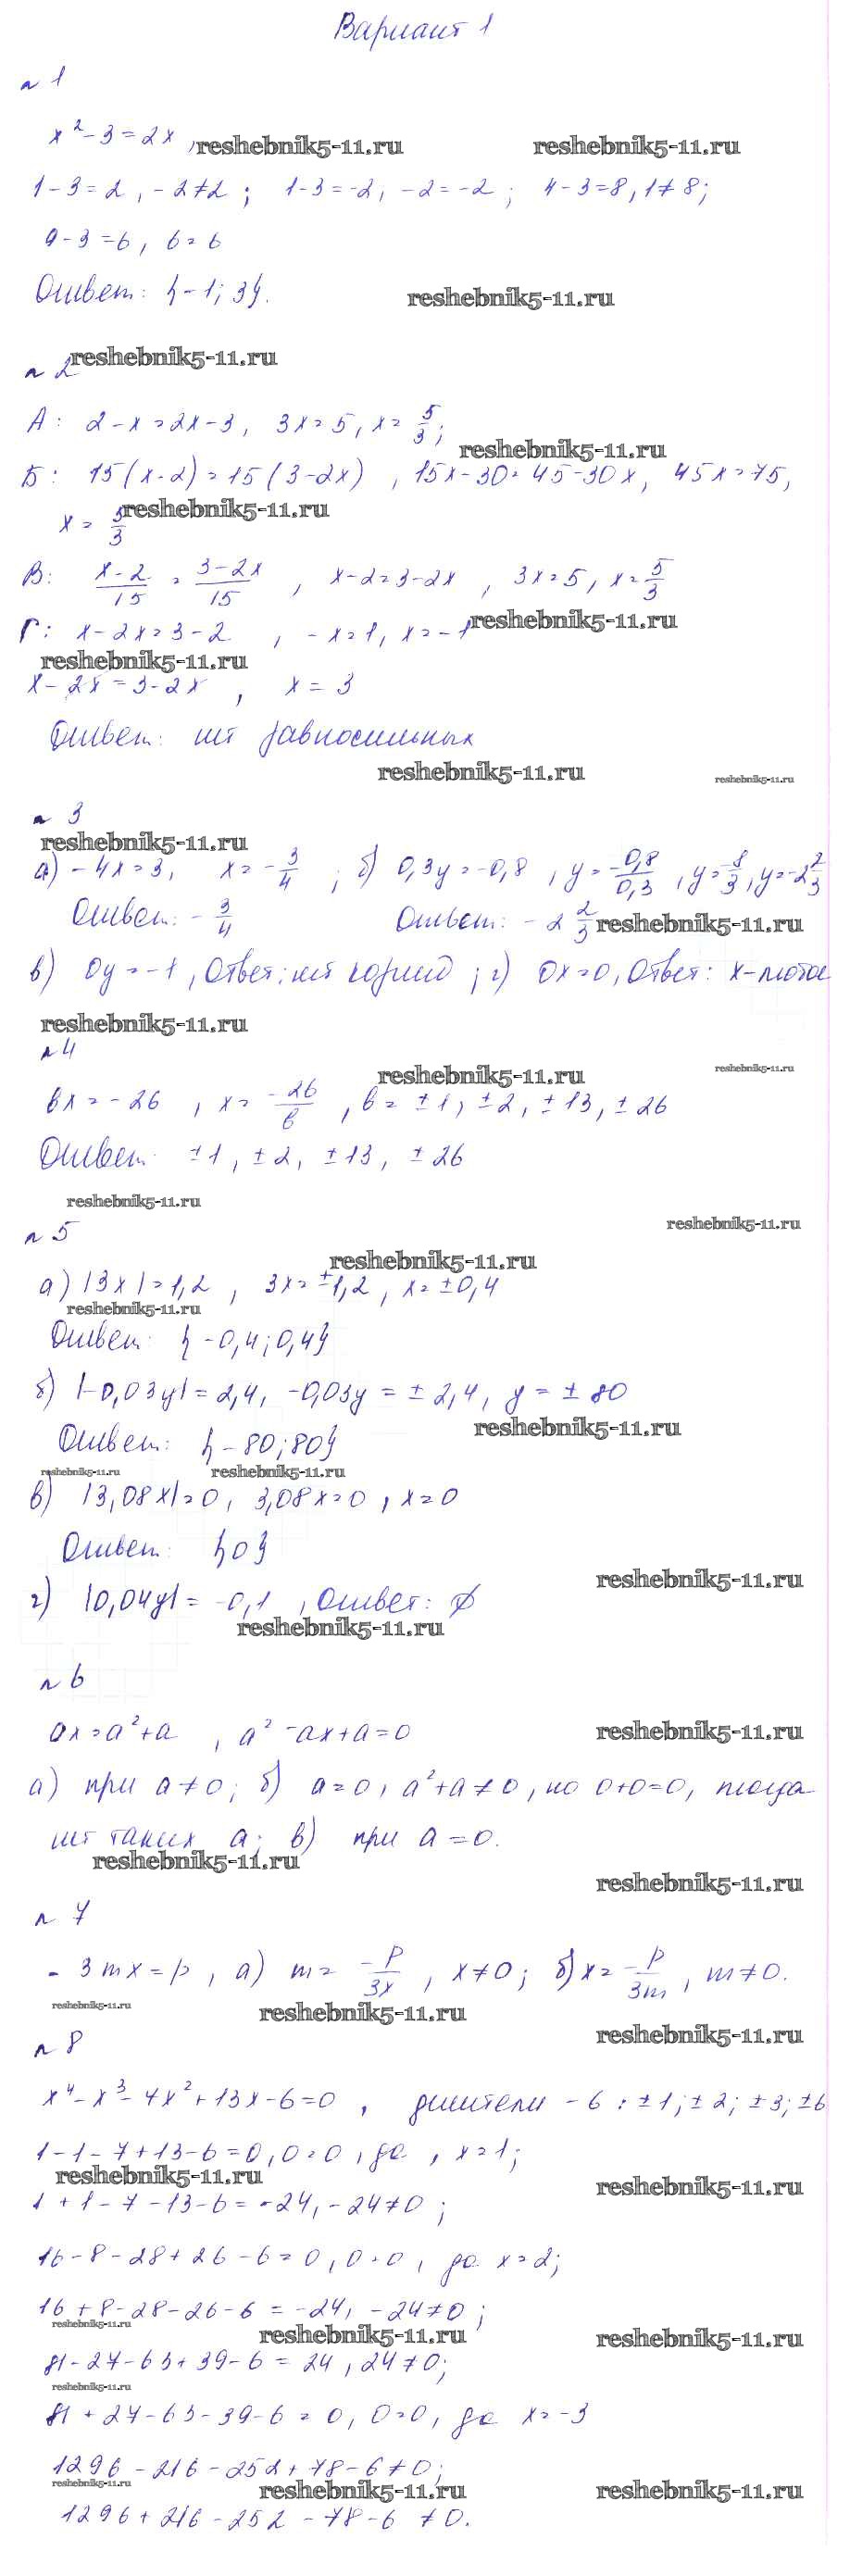 Вариант 1
№ 1
x² - 3 = 2x, reshebnik5-11.ru reshebnik5-11.ru
1 - 3 = 2, -2 ≠ 2; 1 - 3 = -2, -2 = -2; 4 - 3 = 8, 1 ≠ 8;
9 - 3 = 6, 6 = 6
Ответ: {-1; 3}. reshebnik5-11.ru
№ 2 reshebnik5-11.ru
А: 2 - x = 2x - 3, 3x = 5, x = 5/3;
reshebnik5-11.ru
Б: 15(x - 2) = 15(3 - 2x), 15x - 30 = 45 - 30x, 45x = 75,
x = 5/3 reshebnik5-11.ru
В: (x - 2)/15 = (3 - 2x)/15, x - 2 = 3 - 2x, 3x = 5, x = 5/3
Г: x - 2x = 3 - 2, -x = 1, x = -1 reshebnik5-11.ru
reshebnik5-11.ru
x - 2x = 3 - 2x, x = 3
Ответ: нет равносильных
reshebnik5-11.ru reshebnik5-11.ru
№ 3
reshebnik5-11.ru
а) -4x = 3, x = -3/4; б) 0,3y = -0,8, y = -0,8/0,3, y = -8/3, y = -2 2/3
Ответ: -3/4 Ответ: -2 2/3 reshebnik5-11.ru
в) 0y = -1, Ответ: нет корней; г) 0x = 0, Ответ: x - любое
reshebnik5-11.ru
№ 4
reshebnik5-11.ru reshebnik5-11.ru
bx = -26, x = -26/b, b = ±1, ±2, ±13, ±26
Ответ: ±1, ±2, ±13, ±26
reshebnik5-11.ru reshebnik5-11.ru
№ 5
reshebnik5-11.ru
а) |3x| = 1,2, 3x = ±1,2, x = ±0,4
reshebnik5-11.ru
Ответ: {-0,4; 0,4}
б) |-0,03y| = 2,4, -0,03y = ±2,4, y = ±80
reshebnik5-11.ru
Ответ: {-80; 80}
reshebnik5-11.ru reshebnik5-11.ru
в) |3,08x| = 0, 3,08x = 0, x = 0
Ответ: {0}
reshebnik5-11.ru
г) |0,04y| = -0,1, Ответ: ∅
reshebnik5-11.ru
№ 6
ax = a² + a, a² - ax + a = 0 reshebnik5-11.ru
а) при a ≠ 0; б) a = 0, a² + a ≠ 0, но 0 + 0 = 0, тогда
нет таких a; в) при a = 0.
reshebnik5-11.ru
reshebnik5-11.ru
№ 7
-3mx = p, а) m = -p/3x, x ≠ 0; б) x = -p/3m, m ≠ 0.
reshebnik5-11.ru reshebnik5-11.ru
reshebnik5-11.ru
№ 8
x⁴ - x³ - 7x² + 13x - 6 = 0, делители -6: ±1; ±2; ±3; ±6
1 - 1 - 7 + 13 - 6 = 0, 0 = 0, да, x = 1;
reshebnik5-11.ru reshebnik5-11.ru
1 + 1 - 7 - 13 - 6 = -24, -24 ≠ 0;
16 - 8 - 28 + 26 - 6 = 0, 0 = 0, да x = 2;
16 + 8 - 28 - 26 - 6 = -24, -24 ≠ 0;
reshebnik5-11.ru reshebnik5-11.ru reshebnik5-11.ru
81 - 27 - 63 + 39 - 6 = 24, 24 ≠ 0;
reshebnik5-11.ru
81 + 27 - 63 - 39 - 6 = 0, 0 = 0, да x = -3
1296 - 216 - 252 + 78 - 6 ≠ 0;
reshebnik5-11.ru reshebnik5-11.ru reshebnik5-11.ru
1296 + 216 - 252 - 78 - 6 ≠ 0.